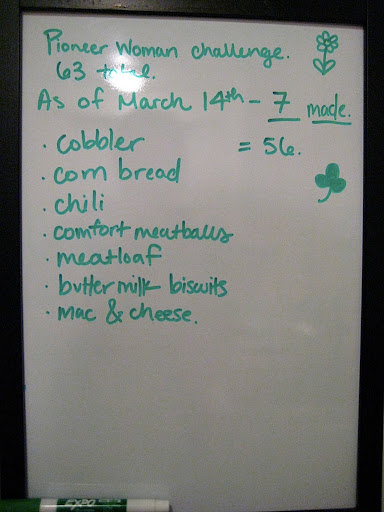 Pioneer Woman challenge.
63 total.
As of March 14th - 7 made.
= 56.
· cobbler
· corn bread
· chili
· comfort meatballs
· meatloaf
· buttermilk biscuits
· mac & cheese.
EXPO